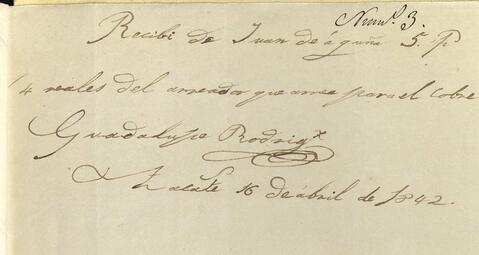 Numº. 3.
Recibi de Juan de águña 5. p
4 reales del arreador que arrea para el Cobre
Guadalupe Rodrigz
Zacate 16 de abril de 1842.